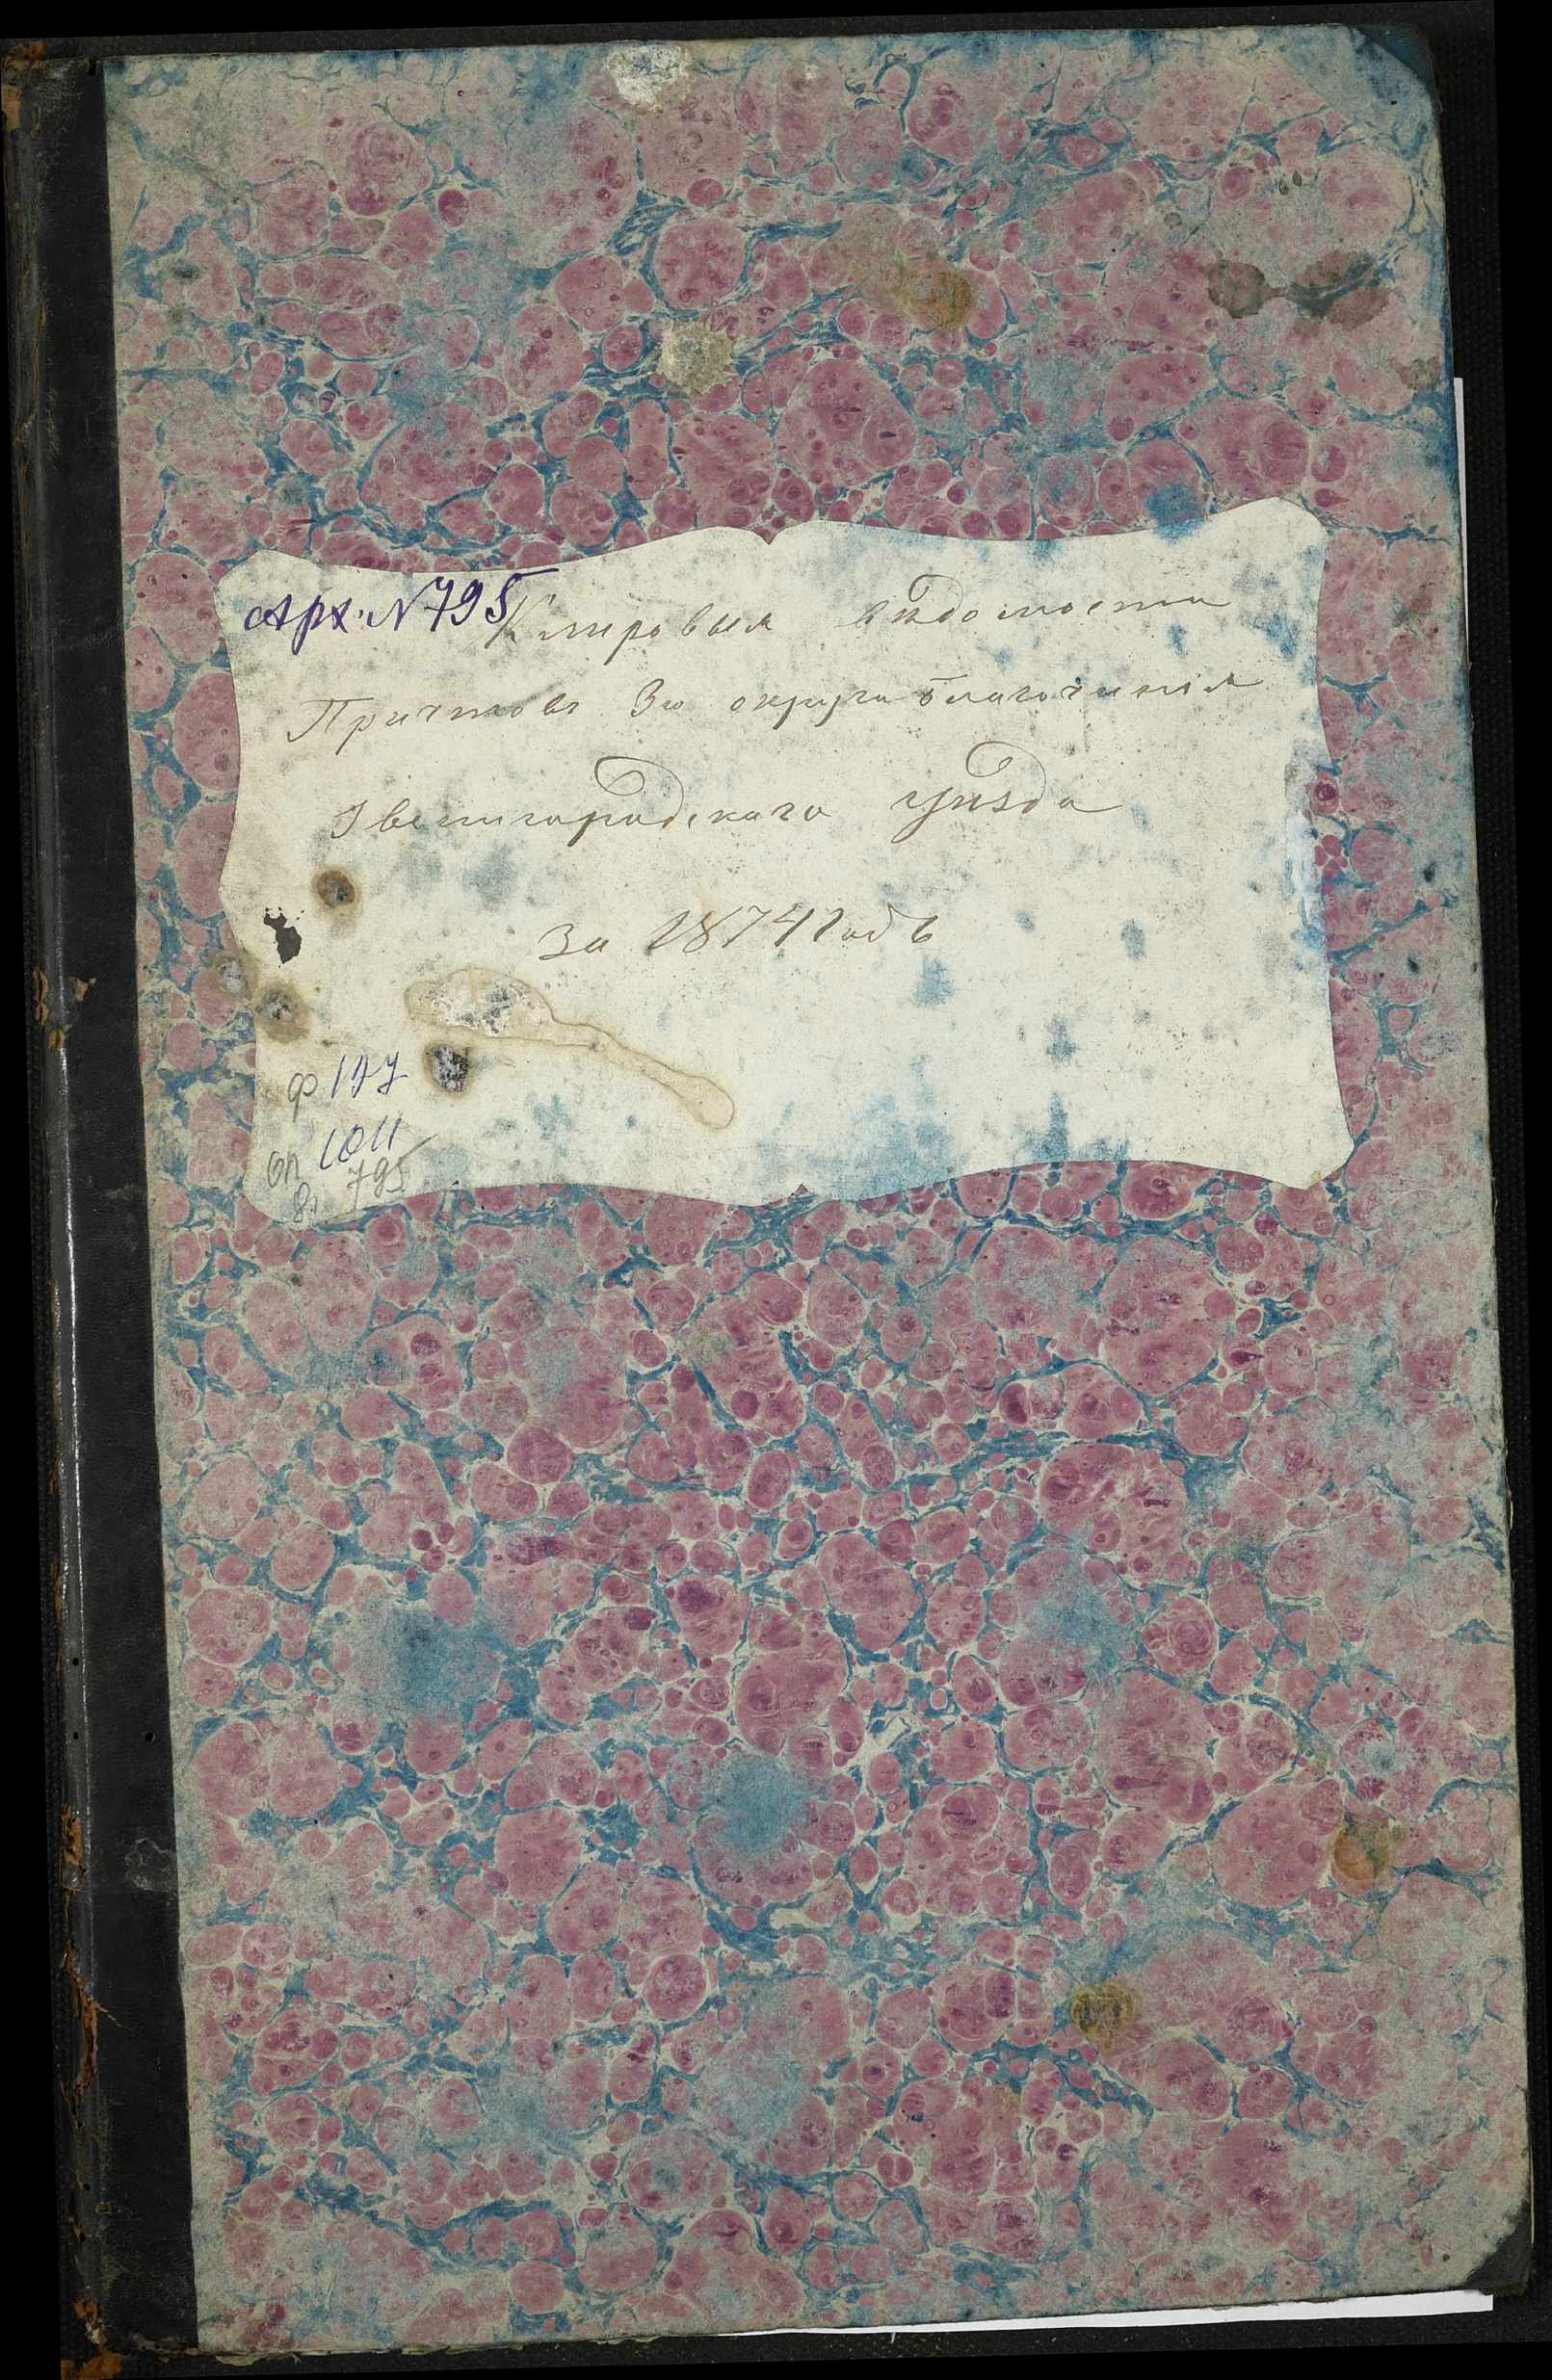 Арх. N 795
Клировыя вѣдомости
Причтовъ 3го округа благочинія
Звенигородскаго уѣзда
За 1874 годъ
ф 127
оп 1011
795